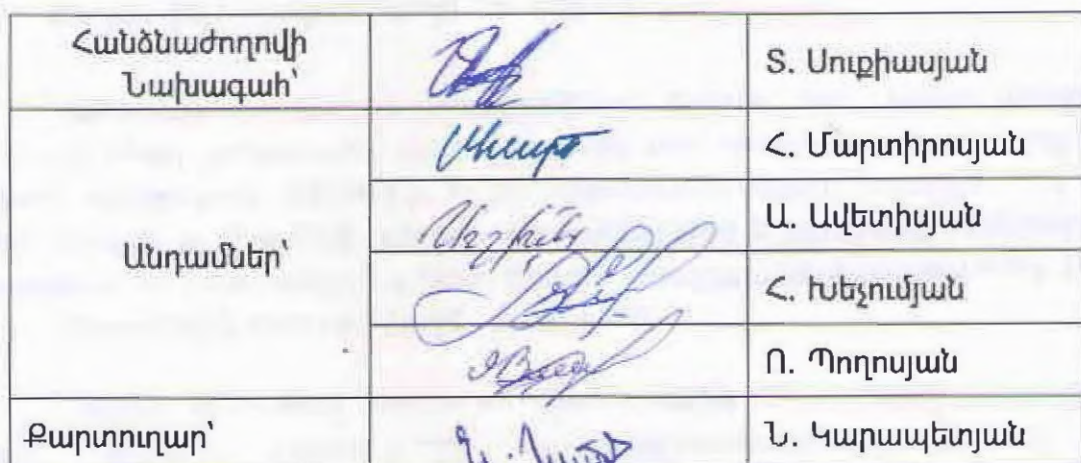 Հանձնաժողովի
Նախագահ՝
Տ. Սուքիասյան
Հ. Մարտիրոսյան
Անդամներ՝
Ա. Ավետիսյան
Հ. Խեչումյան
Ո. Պողոսյան
Քարտուղար՝
Ն. Կարապետյան